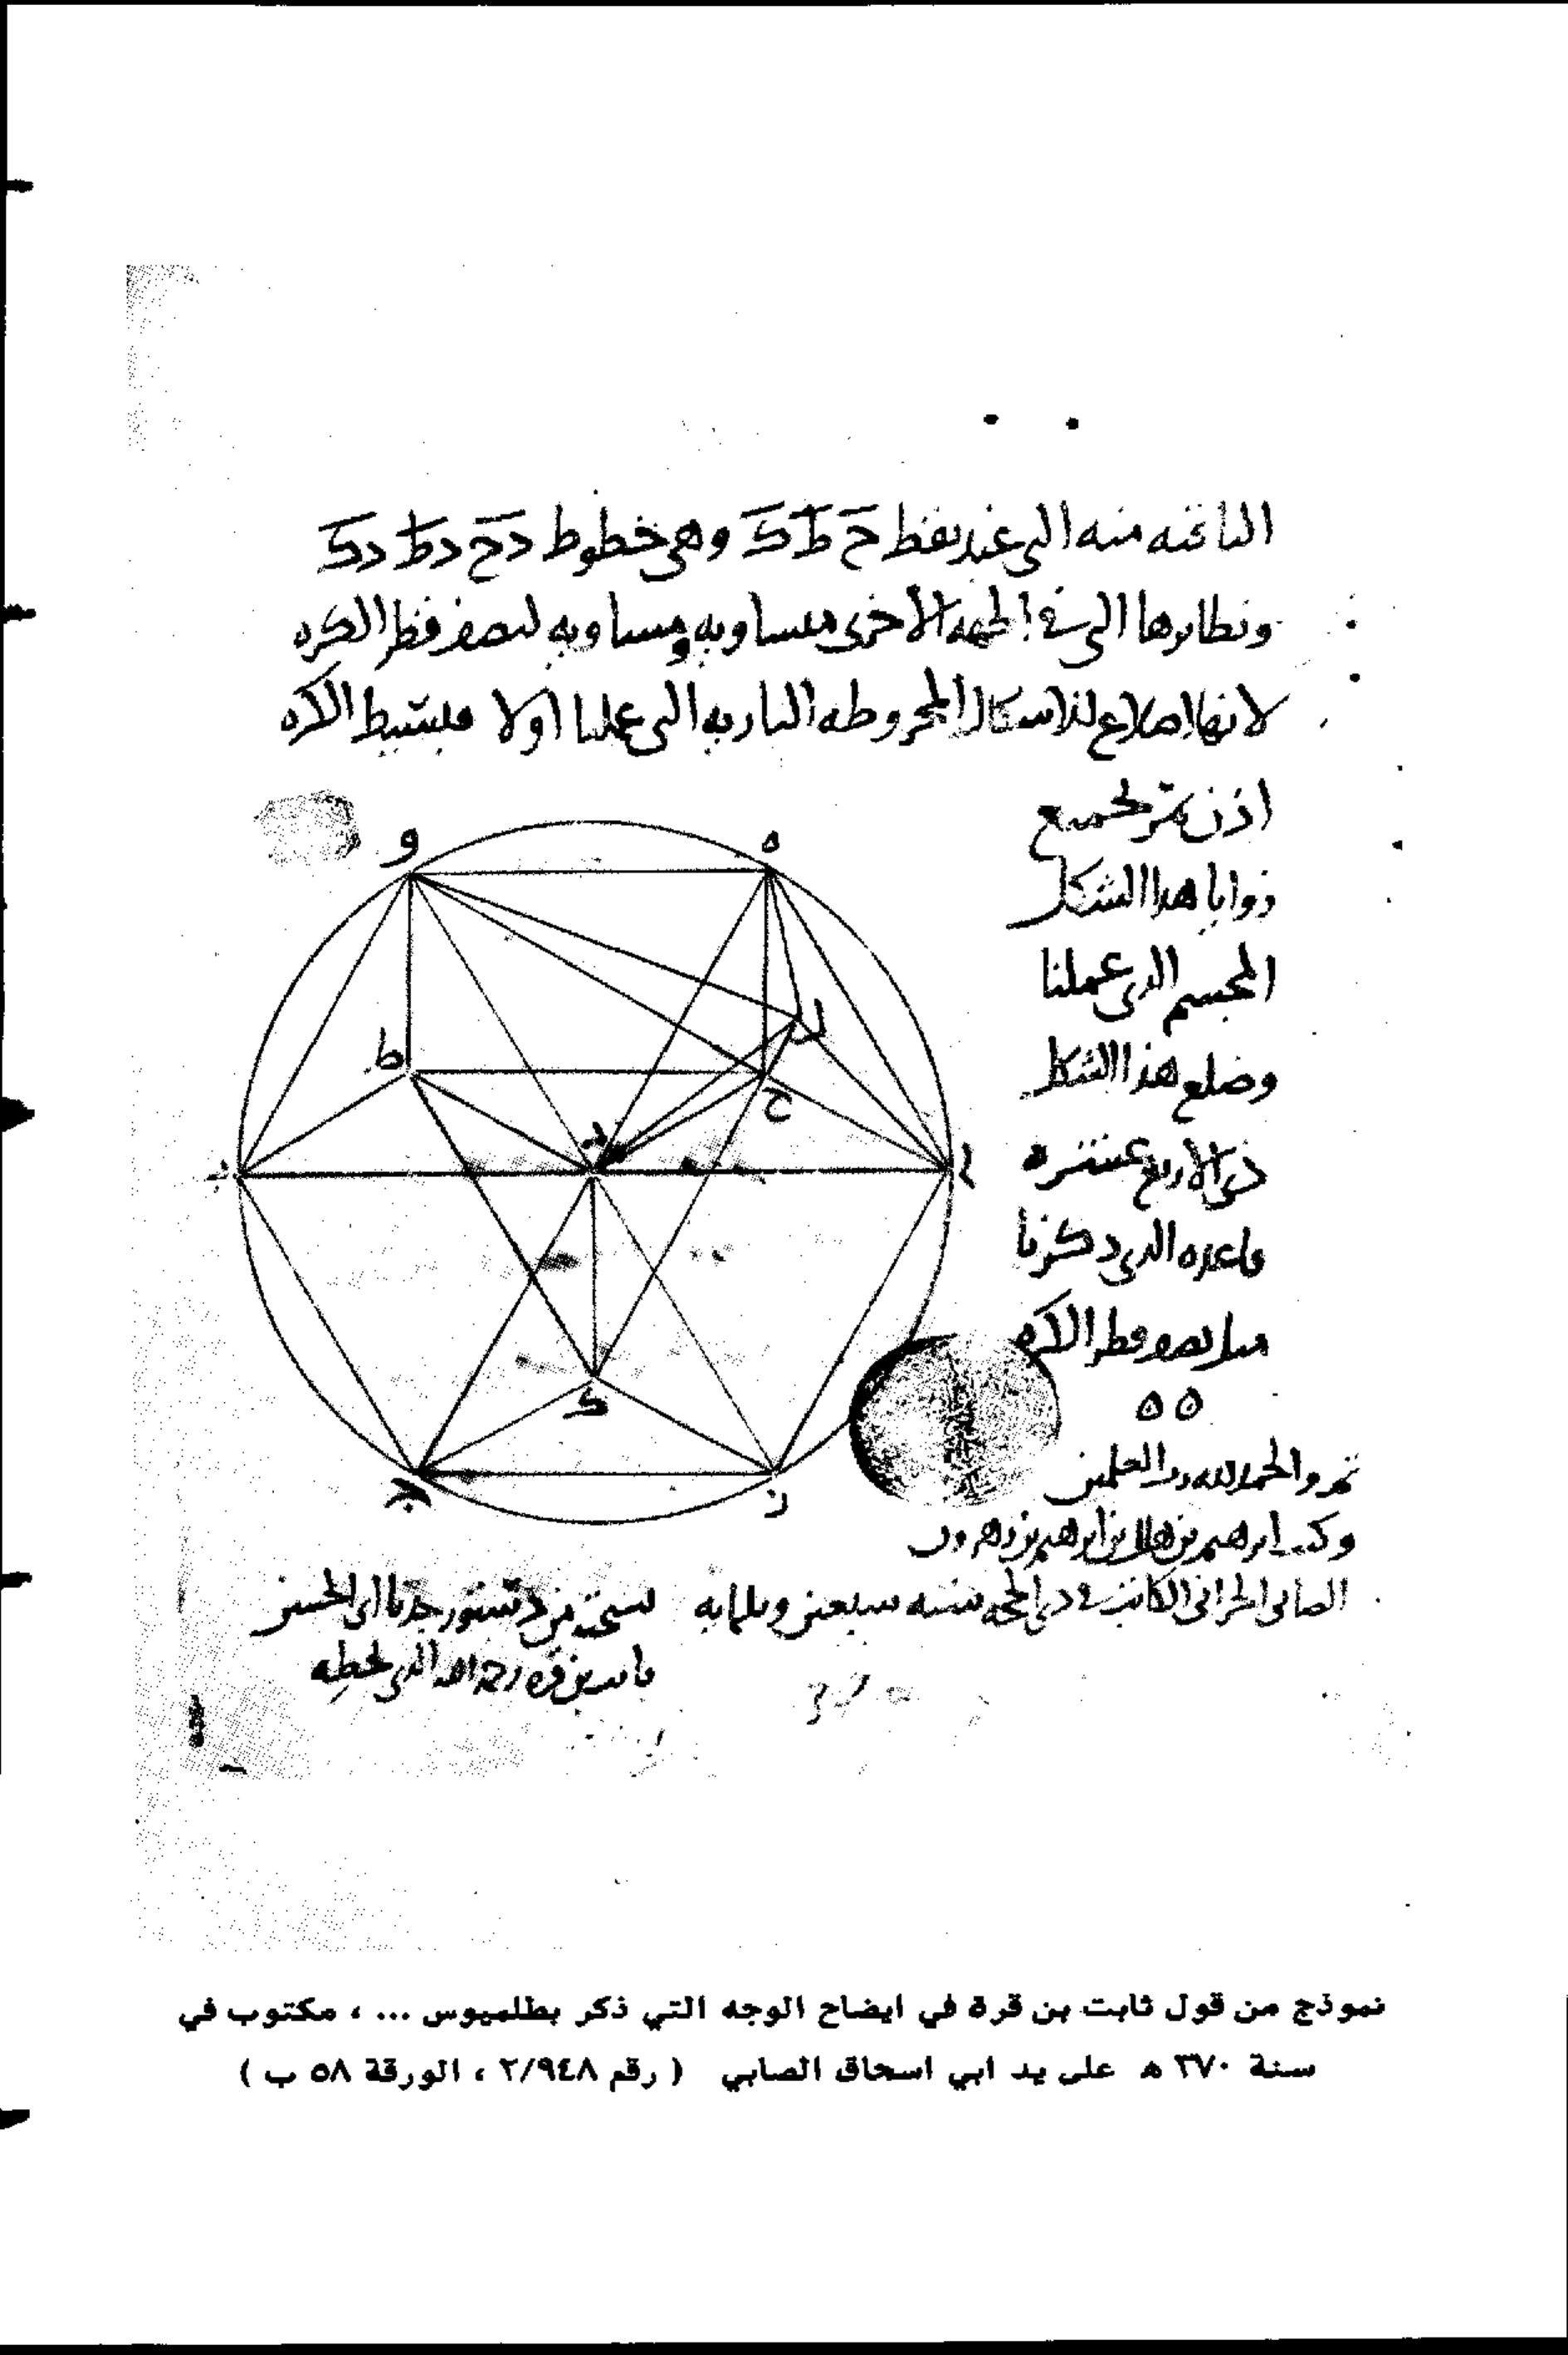 الباقية منه التي عند نقط ح ط ك وهي خطوط دح دط دك
ونظايرها التي في الجهة الأخرى متساوية ومساوية لنصف قطر الكره
لانها اضلاع للاشكال المخروطه النارية التي عملنا اولا فبسيط الكره
اذن يمر بجميع
زوايا هذا الشكل
المجسم الذي عملنا
وضلع هذا الشكل
ذي الاربع عشرة
قاعده الذي ذكرنا
مثل نصف قطر الكره
ه ه
تم والحمد لله رب العلمين
وكتب ابرهيم بن هلال بن ابرهيم بن زهرون
الصابي الحراني الكاتب في ذي الحجه سنه سبعين وثلثمايه
نسخته من دستور جدنا ابي الحسن
ثابت بن قره رحمه الله الذي بخطه
و
ه
ط
ل
ح
د
ب
ا
ك
ج
ز
نموذج من قول ثابت بن قرة في ايضاح الوجه التي ذكر بطلميوس ... ، مكتوب في
سنة ٣٧٠ هـ على يد ابي اسحاق الصابي ( رقم ٢/٩٤٨ ، الورقة ٥٨ ب )